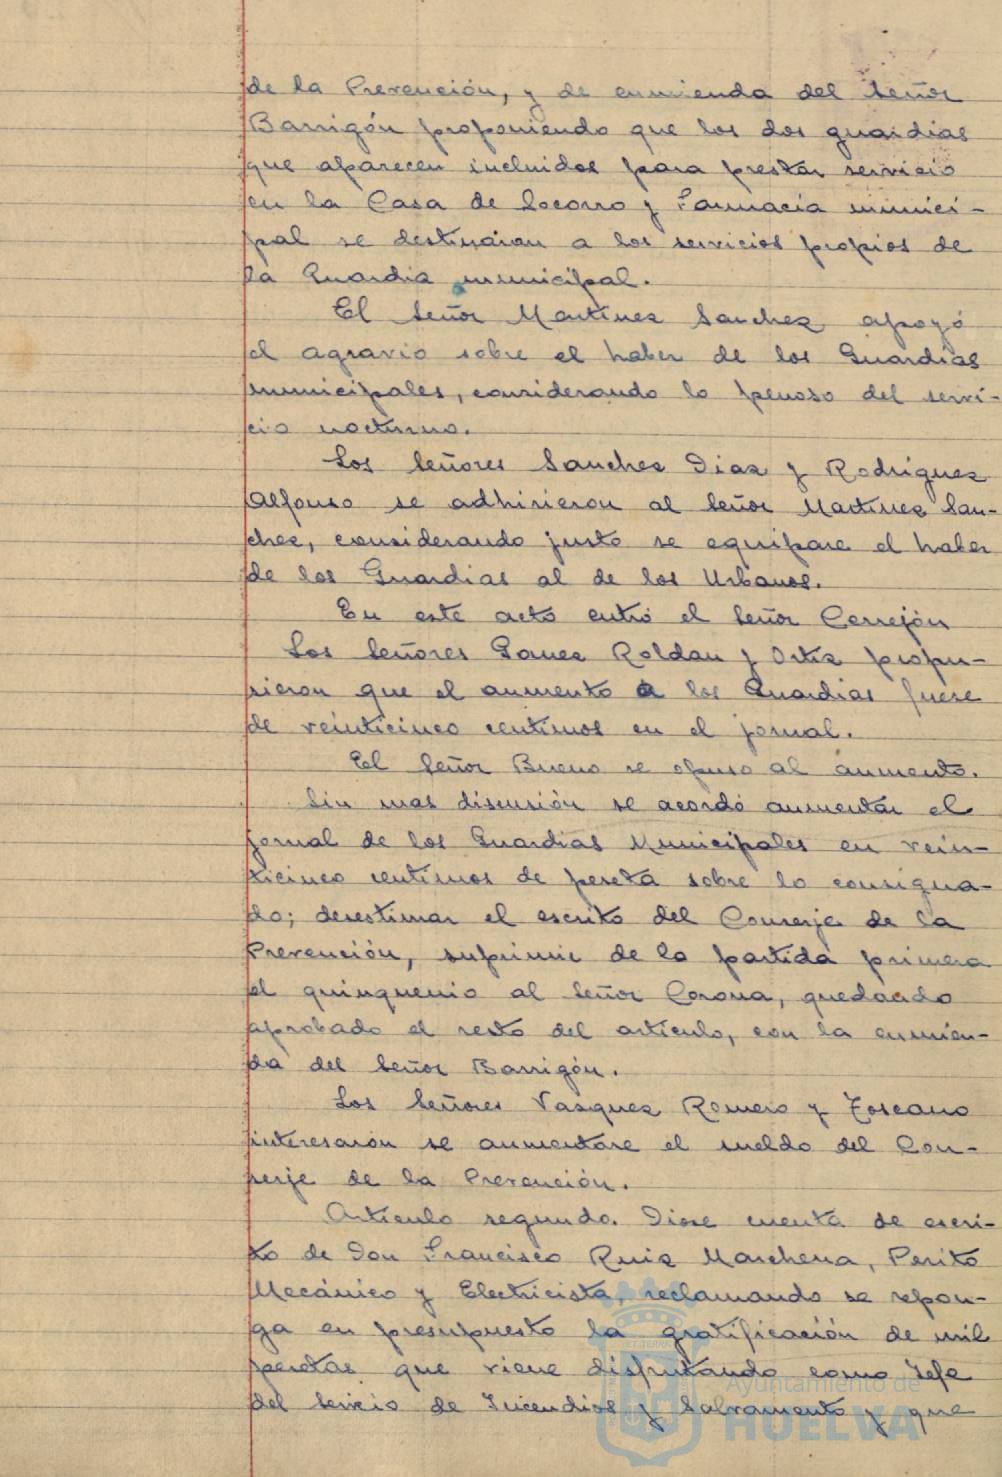 de la Prevención, y de enmienda del Señor
Barrigón proponiendo que los dos guardias
que aparecen incluidos para prestar servicio
en la Casa de Socorro y Farmacia munici-
pal se destinaran a los servicios propios de
la Guardia municipal.
El Señor Martinez Sanchez apoyó
el agravio sobre el haber de los Guardias
municipales, considerando lo penoso del servi-
cio nocturno.
Los Señores Sanchez Diaz y Rodriguez
Alfonso se adhirieron al Señor Martinez San-
chez, considerando justo se equipare el haber
de los Guardias al de los Urbanos.
En este acto entró el Señor Cerrejón
Los Señores Garcez Roldan y Ortiz propu-
sieron que el aumento a los Guardias fuese
de veinticinco centimos en el jornal.
El Señor Bueno se opuso al aumento.
Sin mas discusión se acordó aumentar el
jornal de los Guardias Municipales en vein-
ticinco centimos de peseta sobre lo consigna-
do; desestimar el escrito del Conserje de la
Prevención, suprimir de la partida primera
el quinquenio al Señor Corona, quedando
aprobado el resto del articulo, con la enmien-
da del Señor Barrigón.
Los Señores Vazquez Romero y Toscano
interesaron se aumentare el sueldo del Con-
serje de la Prevención.
Articulo segundo. Diose cuenta de escri-
to de Don Francisco Ruiz Marchena, Perito
Mecánico y Electricista, reclamando se repon-
ga en presupuesto la gratificación de mil
pesetas que viene disfrutando como Jefe
del Servicio de Incendios y Salvamento y que
Ayuntamiento de
HUELVA